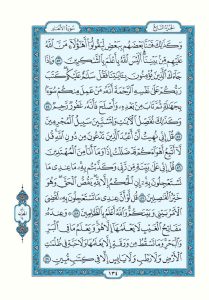 الجزء السابع
سورة الأنعام
وَكَذَٰلِكَ فَتَنَّا بَعْضَهُم بِبَعْضٍ لِّيَقُولُوٓا۟ أَهَـٰٓؤُلَآءِ مَنَّ ٱللَّهُ
عَلَيْهِم مِّنۢ بَيْنِنَآ أَلَيْسَ ٱللَّهُ بِأَعْلَمَ بِٱلشَّـٰكِرِينَ ٥٣ وَإِذَا
جَآءَكَ ٱلَّذِينَ يُؤْمِنُونَ بِـَٔايَـٰتِنَا فَقُلْ سَلَـٰمٌ عَلَيْكُمْ كَتَبَ
رَبُّكُمْ عَلَىٰ نَفْسِهِ ٱلرَّحْمَةَ أَنَّهُۥ مَنْ عَمِلَ مِنكُمْ سُوٓءًۢا
بِجَهَـٰلَةٍ ثُمَّ تَابَ مِنۢ بَعْدِهِۦ وَأَصْلَحَ فَأَنَّهُۥ غَفُورٌ رَّحِيمٌ ٥٤
وَكَذَٰلِكَ نُفَصِّلُ ٱلْـَٔايَـٰتِ وَلِتَسْتَبِينَ سَبِيلُ ٱلْمُجْرِمِينَ ٥٥
قُلْ إِنِّى نُهِيتُ أَنْ أَعْبُدَ ٱلَّذِينَ تَدْعُونَ مِن دُونِ ٱللَّهِ قُل
لَّآ أَتَّبِعُ أَهْوَآءَكُمْ قَدْ ضَلَلْتُ إِذًا وَمَآ أَنَا۠ مِنَ ٱلْمُهْتَدِينَ ٥٦
قُلْ إِنِّى عَلَىٰ بَيِّنَةٍ مِّن رَّبِّى وَكَذَّبْتُم بِهِۦ مَا عِندِى مَا
تَسْتَعْجِلُونَ بِهِۦٓ إِنِ ٱلْحُكْمُ إِلَّا لِلَّهِ يَقُصُّ ٱلْحَقَّ وَهُوَ
خَيْرُ ٱلْفَـٰصِلِينَ ٥٧ قُل لَّوْ أَنَّ عِندِى مَا تَسْتَعْجِلُونَ بِهِۦ لَقُضِىَ
ٱلْأَمْرُ بَيْنِى وَبَيْنَكُمْ وَٱللَّهُ أَعْلَمُ بِٱلظَّـٰلِمِينَ ٥٨ وَعِندَهُۥ
مَفَاتِحُ ٱلْغَيْبِ لَا يَعْلَمُهَآ إِلَّا هُوَ وَيَعْلَمُ مَا فِى ٱلْبَرِّ
وَٱلْبَحْرِ وَمَا تَسْقُطُ مِن وَرَقَةٍ إِلَّا يَعْلَمُهَا وَلَا حَبَّةٍ فِى ظُلُمَـٰتِ
ٱلْأَرْضِ وَلَا رَطْبٍ وَلَا يَابِسٍ إِلَّا فِى كِتَـٰبٍ مُّبِينٍ ٥٩
١٣٤